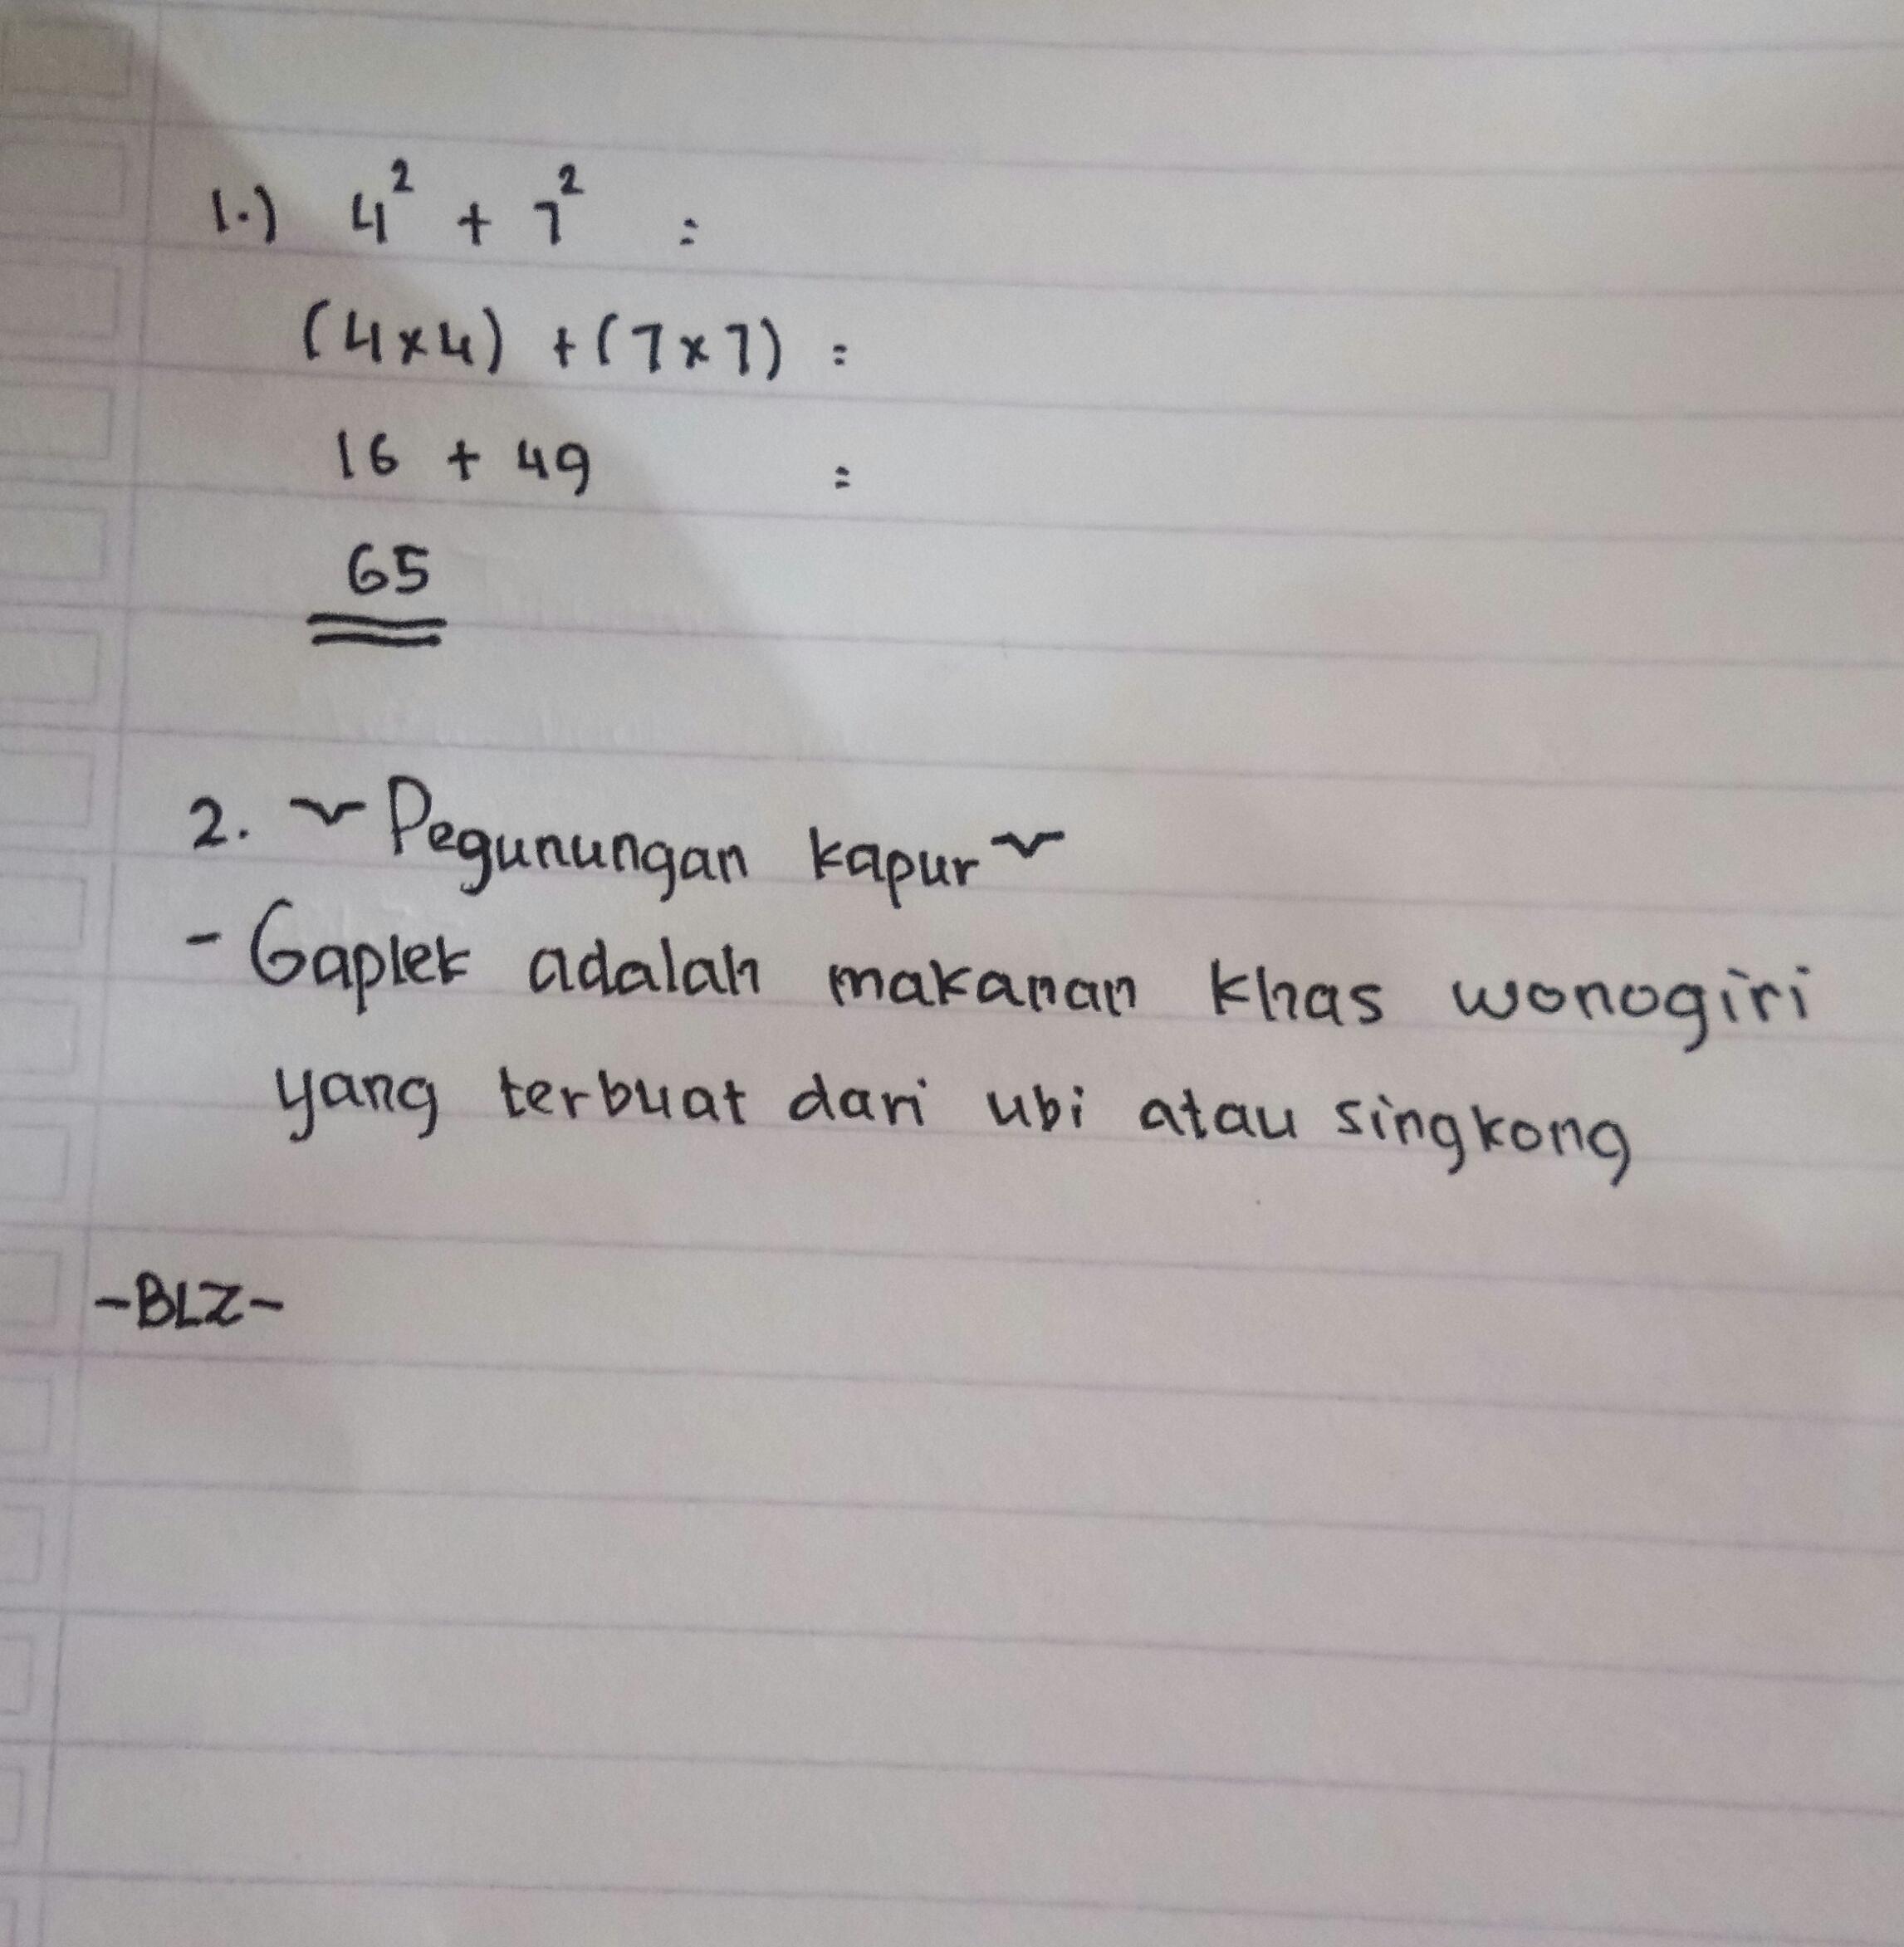 1.) 4² + 7² =
(4x4) + (7x7) =
16 + 49 =
65
2. ~ Pegunungan kapur ~
- Gaplek adalah makanan khas wonogiri
yang terbuat dari ubi atau singkong
-BLZ-